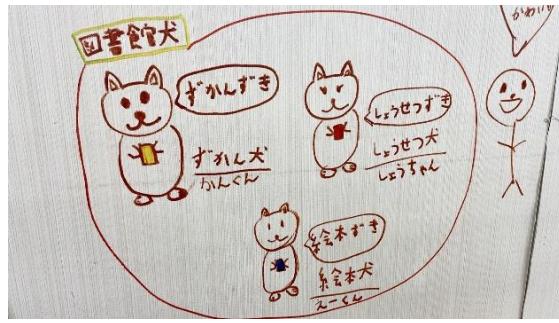 図書館犬
かわいい
ずかんずき
ずかん犬
かんくん
しょうせつずき
しょうせつ犬
しょうちゃん
絵本ずき
絵本犬
えーくん